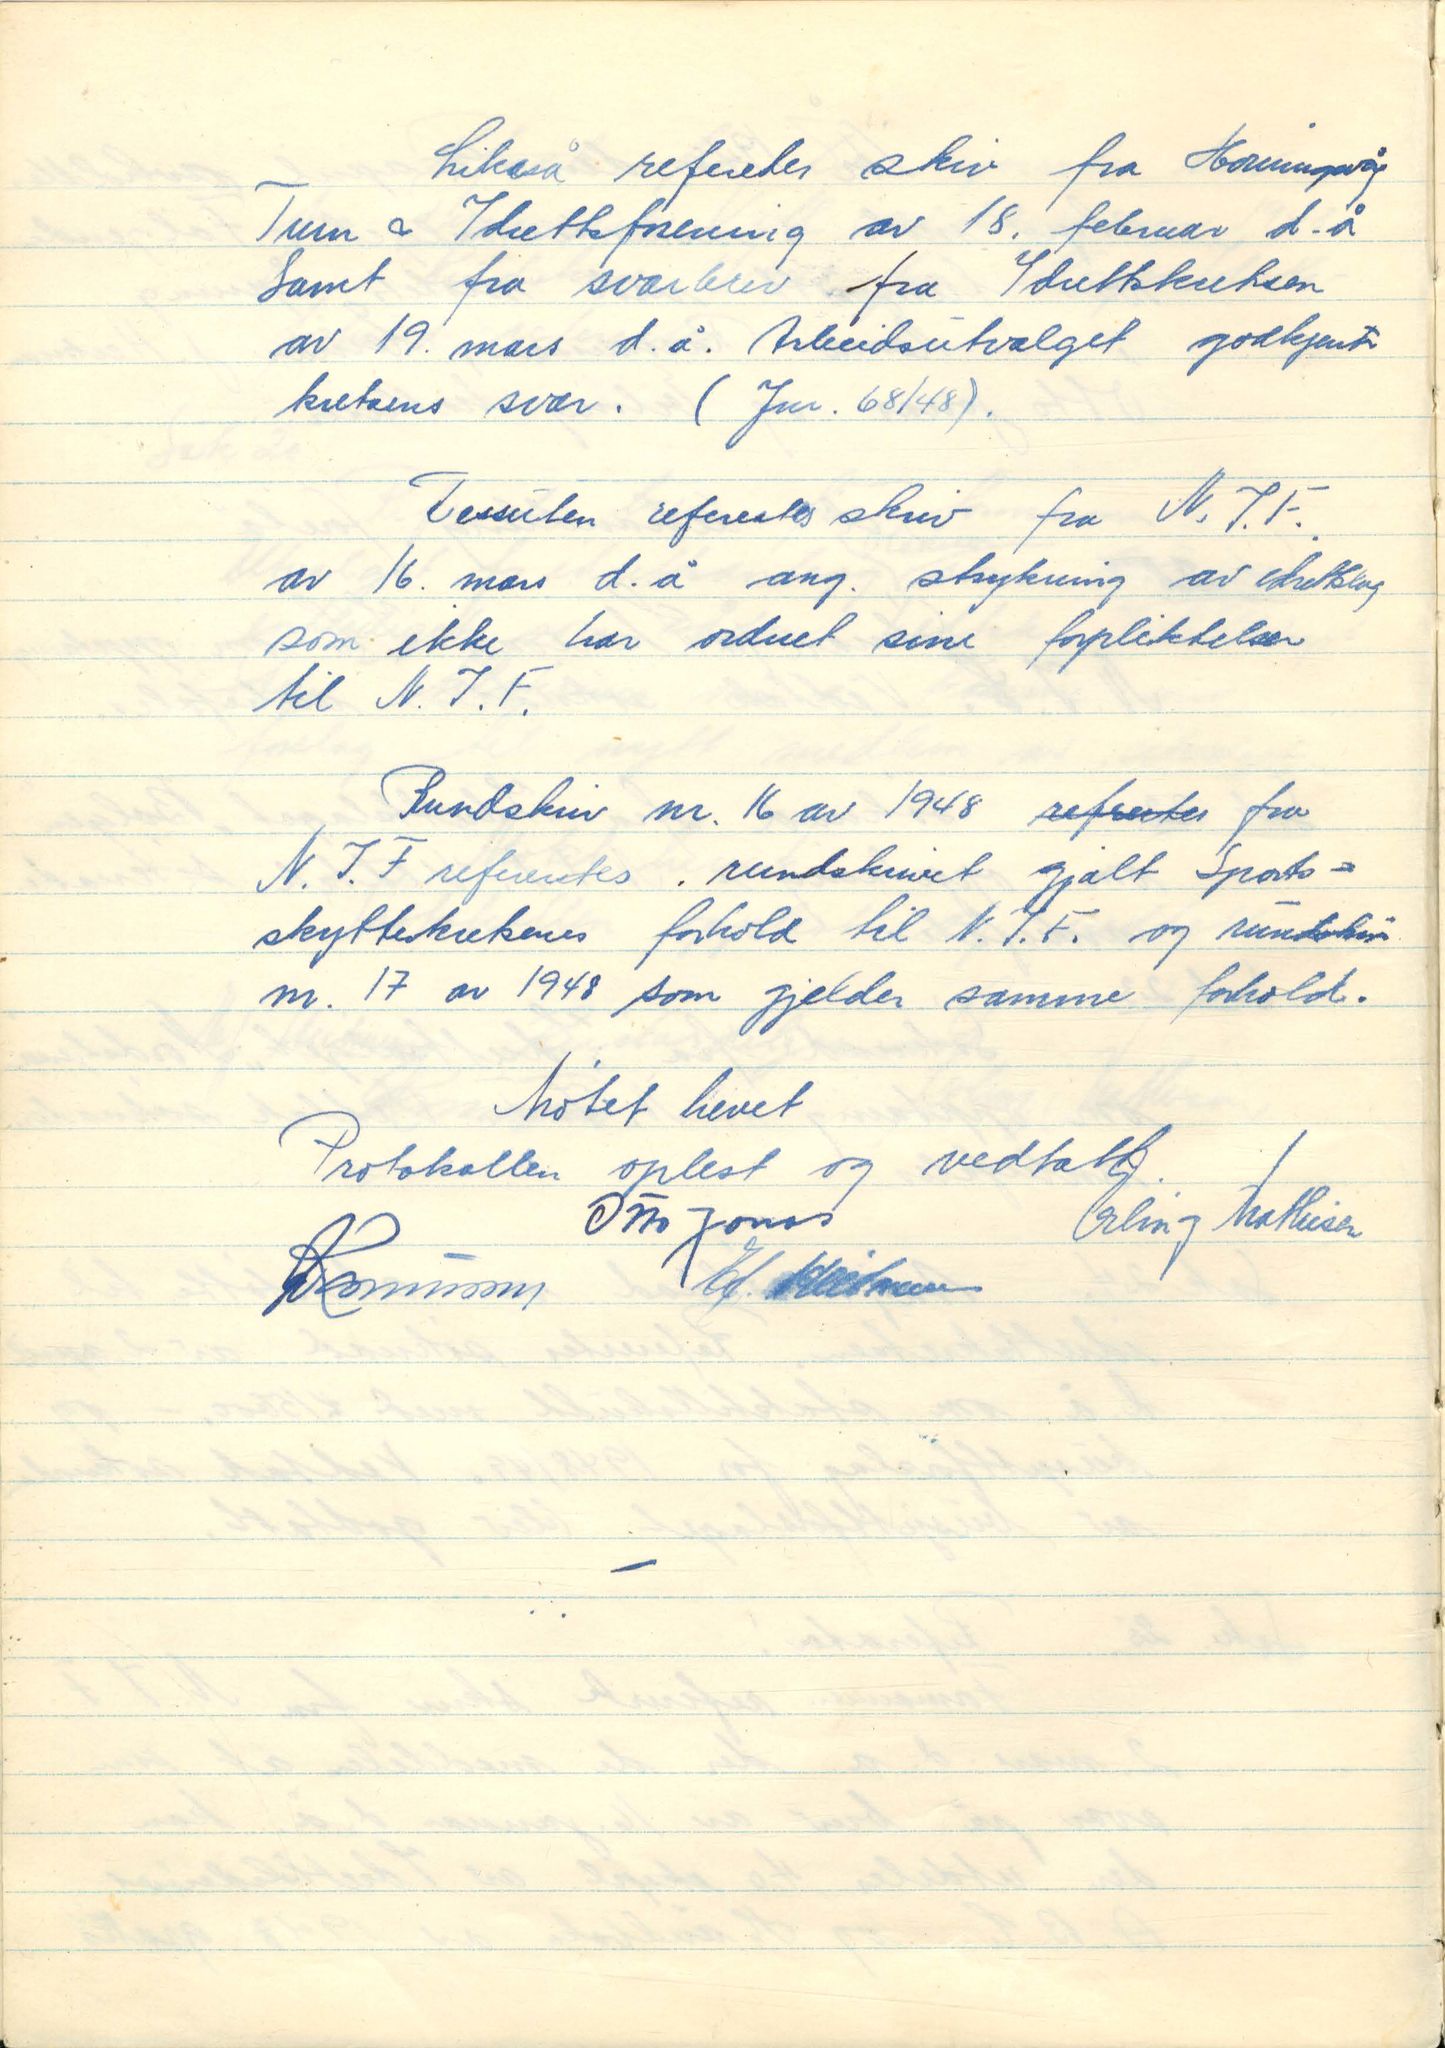 Likeså referertes skriv fra Honningsvåg
Turn & Idrettsforening av 18. februar d.å
Samt fra svarbrev fra Idrettskretsen
av 19. mars d.å. Arbeidsutvalget godkjente
kretsens svar. (Jnr. 68/48).
Dessuten referertes skriv fra N.I.F.
av 16. mars d.å ang. strykning av idrettslag
som ikke har ordnet sine forpliktelser
til N.I.F.
Rundskriv nr. 16 av 1948 refertes fra
N.I.F referertes. rundskrivet gjalt Sports=
skytterkretsenes forhold til N.I.F. og rundskriv
nr. 17 av 1948 som gjelder samme forhold.
Møtet hevet
Protokollen oplest og vedtatt.
Otto Jonas Erling Mathisen